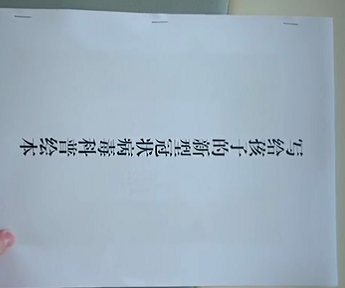 写给孩子的新型冠状病毒科普绘本